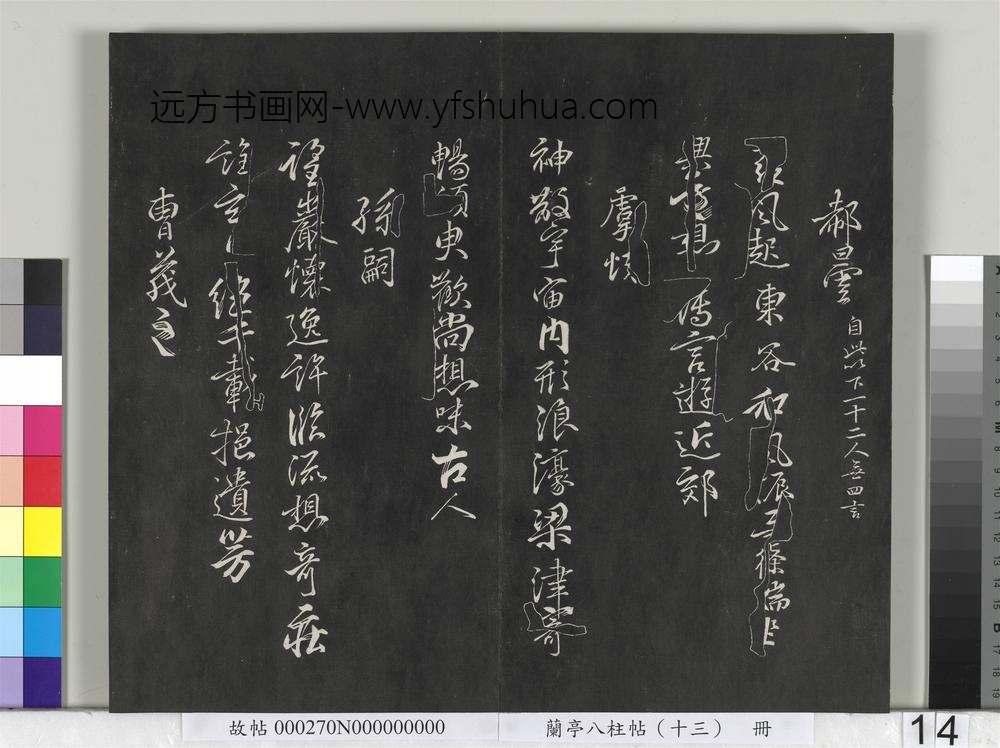 远方书画网-www.yfshuhua.com
郗曇 自此下一十二人無四言
風起東谷和振條端坐
興遠想言遊近郊
虞
神散宇宙內形浪濠梁津寄
暢須臾歡尚想味古人
孫嗣
望巖懷逸許臨流想奇莊
誰云絕千載挹遺芳
曹茂之
故帖 000270N000000000
蘭亭八柱帖(十三) 冊
14